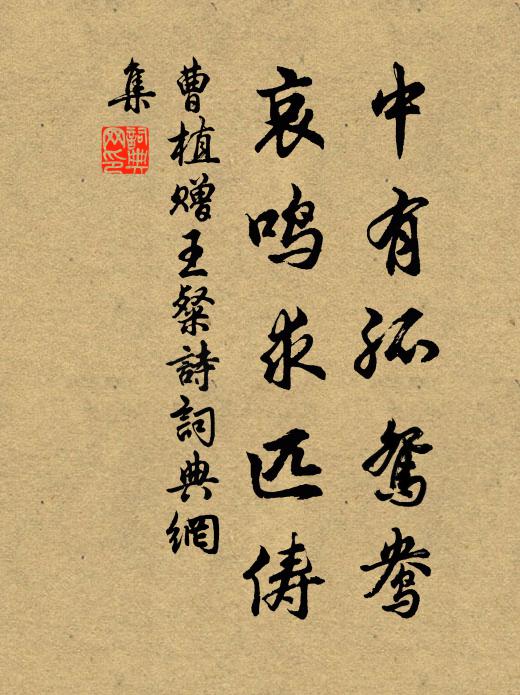 中有孤鸳鸯
哀鸣求匹俦
曹植赠王粲詩詞典網
集
詞典
网印